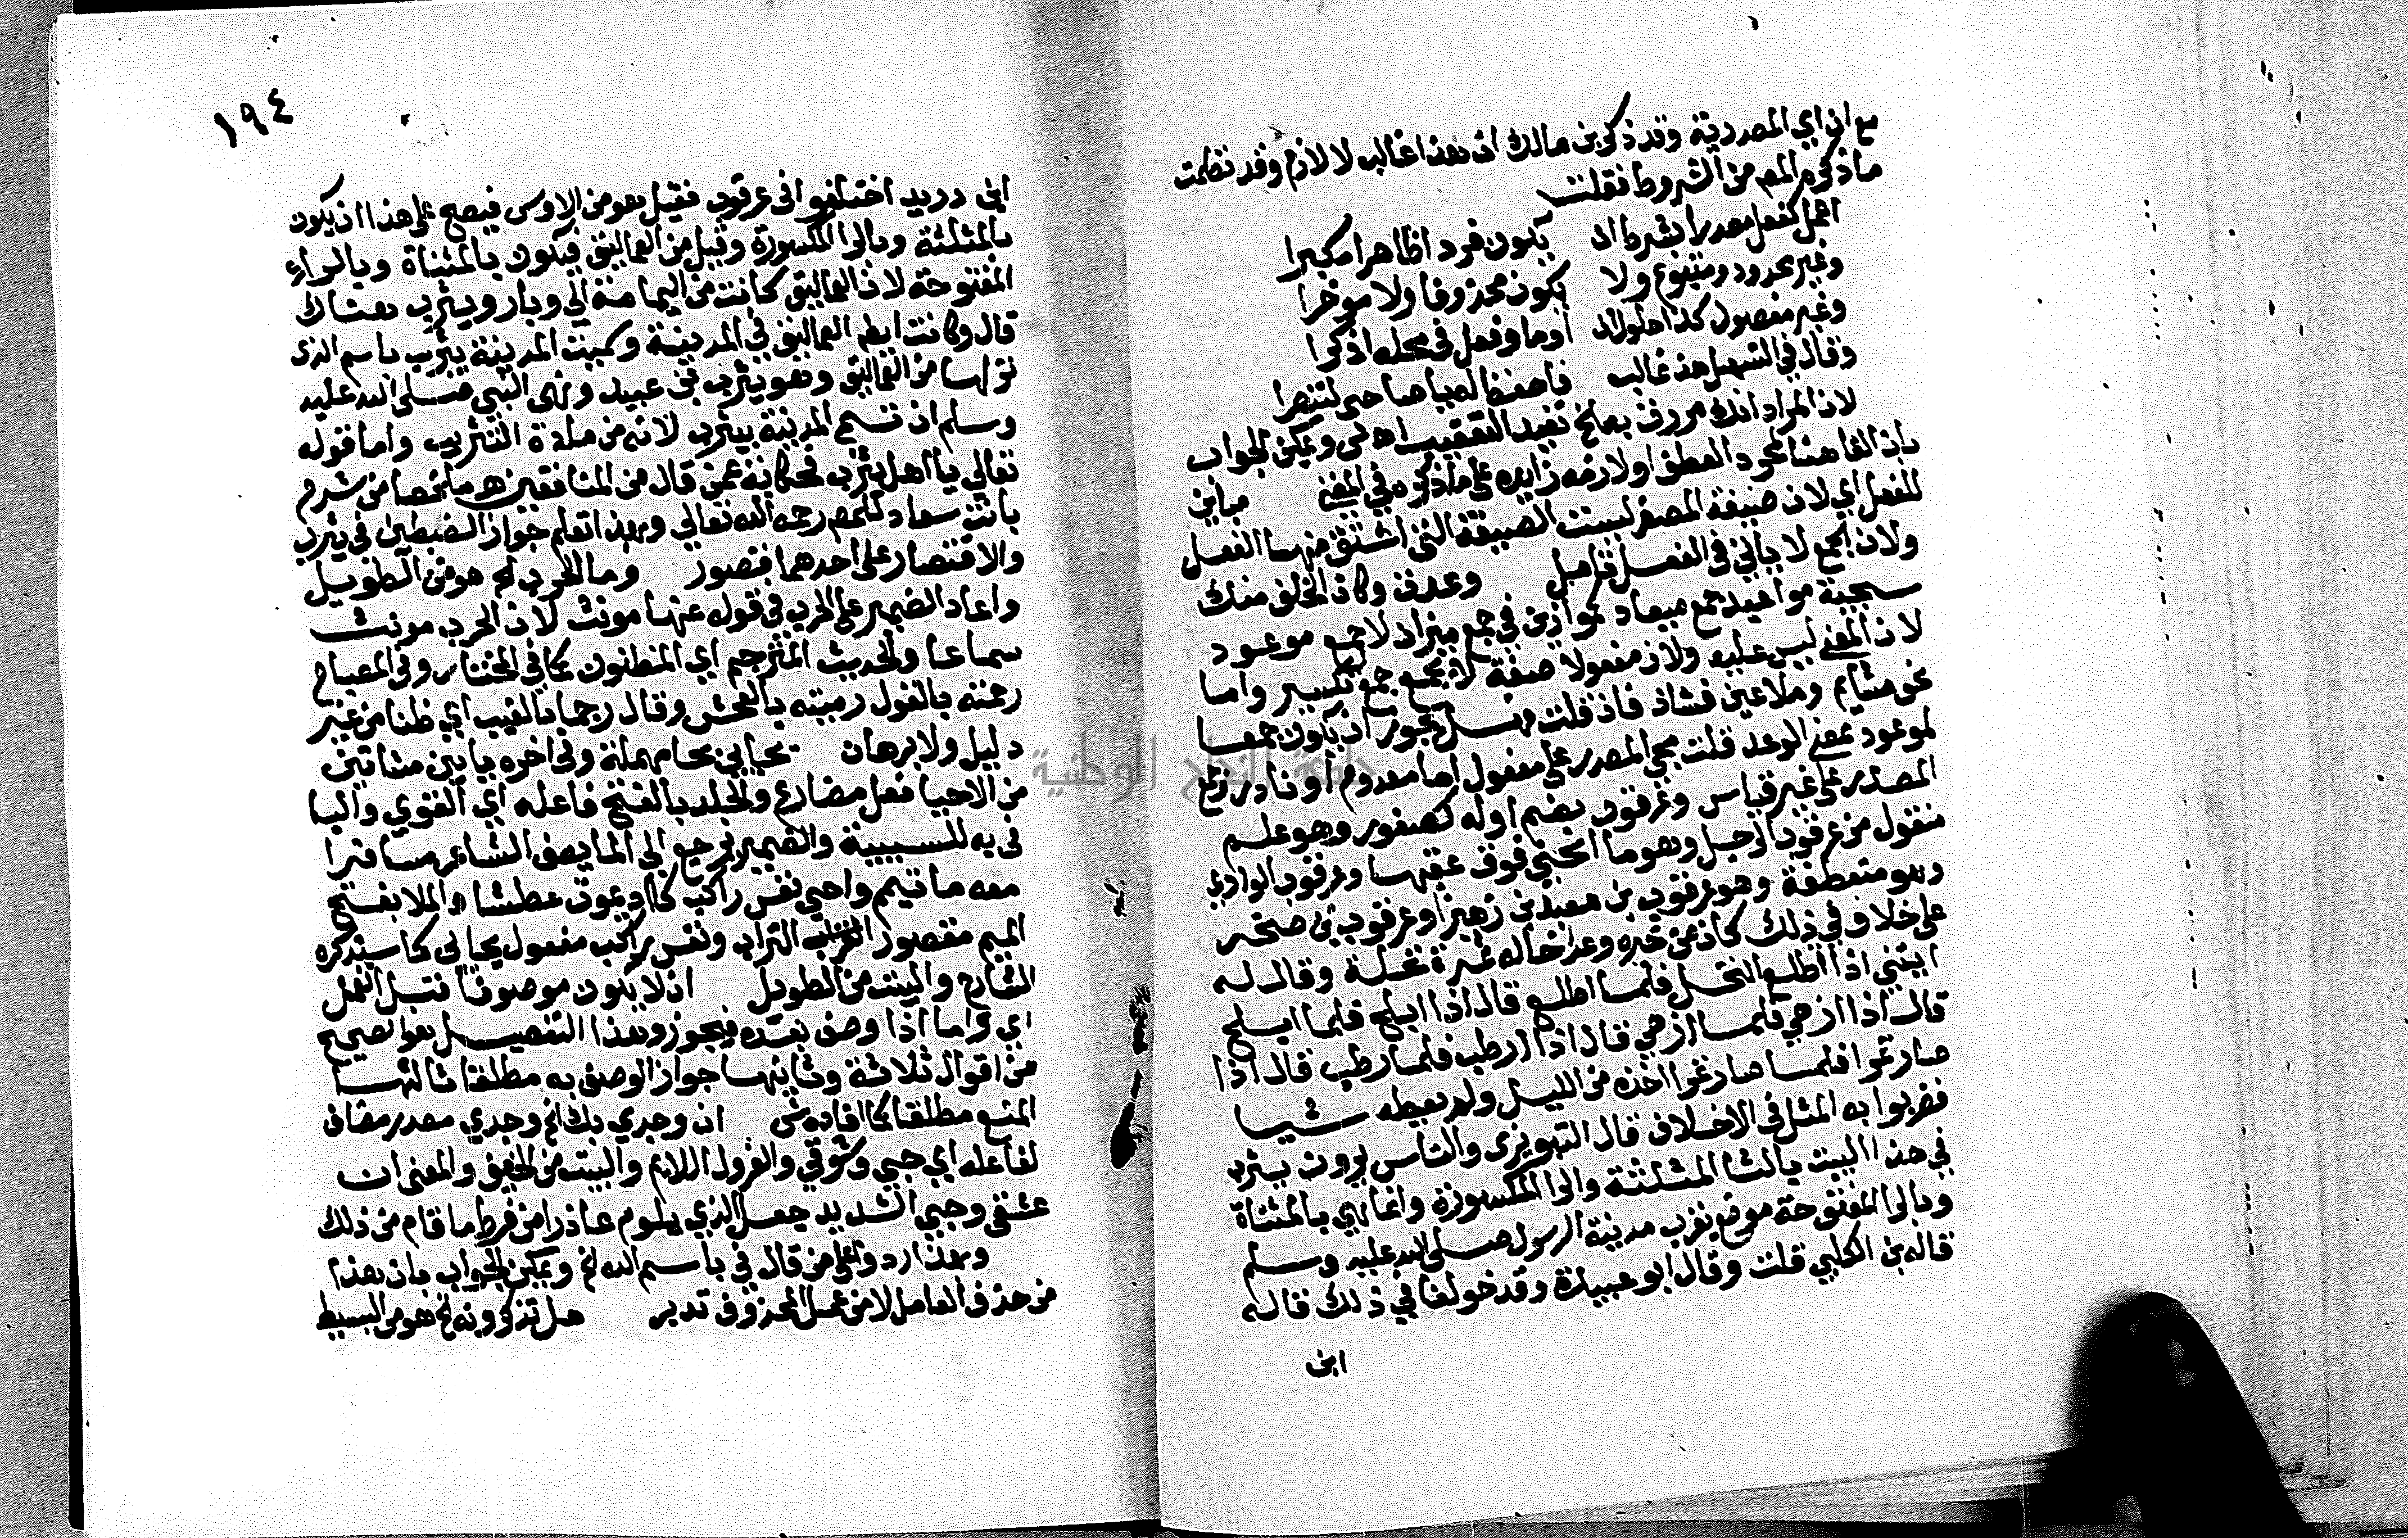 مع ان اي المصدرية وقد ذكر بن مالك ان هذا غالب لا لازم وقد نظمت
ما ذكره المص من الشروط فقلت
اعمل كفعل مصدرا بشرط ان يكون فردا ظاهرا مكبرا
وغير محدود ومتبوع ولا يكون محذوفا ولا موخرا
وغير مفصول كذا حلول ان او ما وفعل في محله اذكرا
وقال في التسهيل هذا غالب فاحفظ لها يا صاحبي لتنصرا
لان المراد انك مررت به الخ تفيد التعقيب اهـ ويمكن الجواب
بان الفا هنا لمجرد العطف اولا زمه زايده على ما ذكره في المغني مباين
للفعل اي لان صيغة المصغر ليست الصيغة التي اشتق منها الفعل
ولان الجمع لا ياتي في الفعل فتامل وعدت وكان الخلف منك
سجية مواعيد جمع ميعاد كموازين في جمع ميزان لا جمع موعود
لان المعني ليس عليه ولان مفعولا صفة لا يجمع جمع تكسير واما
نحو مشايم وملاعين فشاذ فان قلت هل يجوز ان يكون جمعا
لموعود بمعني الوعد قلت مجي المصدر على مفعول اما معدوم او نادر وجمع
المصدر على غير قياس وعرقوب بضم اوله كعصفور وهو علم
منقول من عرقوب الرجل وهو ما انحني فوق عقبها وعرقوب الوادي
وهو متعطفة وهو عرقوب بن معبد بن زهير او عرقوب بن صخر
على خلاف في ذلك كان من خبره وعد اخا له ثمرة نخلة وقال له
ايتني اذا اطلع النخل فلما اطلع قال اذا ابلح فلما ابلح
قال اذا ازهي فلما ازهي قال اذا ارطب فلما ارطب قال اذا
صار تمرا فلما صار تمرا اخذه من الليل ولم يعطه شيا
فضربوا به المثل في الاخلاف قال التبريزي والناس يروون يثرب
في هذا البيت بالثا المثلثة والرا المكسورة وانما هي بالمثناة
وبالرا المفتوحة موضع بقرب مدينة الرسول صلى الله عليه وسلم
قاله بن الكلبي قلت وقال ابو عبيدة وقد خولفا في ذلك قاله
ابن
١٩٤
ابن دريد اختلفوا في عرقوب فقيل هو من الاوس فيصح على هذا ان يكون
بالمثلثة وبالرا المكسورة وقيل من العماليق فيكون بالمثناة وبالراء
المفتوحة لان العماليق كانت من اليمامة الي وبار ويترب هناك
قال وكانت ايضا العماليق في المدينة وسميت المدينة يثرب باسم الذي
نزلها من العماليق وهو يثرب بن عبيد ونهى النبي صلى الله عليه
وسلم ان تسمى المدينة بيثرب لانه من مادة التثريب واما قوله
تعالي يا اهل يثرب فحكاية عمن قال من المنافقين اهـ ملخصا من شرح
بانت سعاد للمص رحمه الله تعالي وبهذا تعلم جواز الضبطين في يثرب
والاقتصار على احدهما قصور وما الحرب الخ هو من الطويل
واعاد الضمير على الحرب في قوله عنها مونث لان الحرب مونث
سماعا والحديث المترجم اي المظنون كما في المختار وفي المصباح
رجمته بالقول رميته بالفحش وقال رجما بالغيب اي ظنا من غير
دليل ولا برهان يحايي بحا مهملة وفي اخره يا بين مثناتين
من الاحيا فعل مضارع والجلد بالفتح فاعله اي القوي والبا
في به للسببية والضمير يرجع الي الما يصف الشاعر مسافرا
معه ما تيمم واحي نفس راكب كاد يموت عطشا والملا بفتح
الميم مقصور التراب ونفس راكب مفعول يحايي كما سيذكره
الشارح والبيت من الطويل ان لا يكون موصوفا قبل العمل
اي واما اذا وصف بعده فيجوز وهذا التفصيل هو الصحيح
من اقوال ثلاثة وثانيها جواز الوصف به مطلقا ثالثها
المنع مطلقا كما افاده ش ان وجدي بك الخ وجدي مصدر مضاف
لفاعله اي حبي وشوقي والعذول اللايم والبيت من الخفيف والمعنى ان
عشقي وحبي الشديد جعل الذي يلوم عاذرا من فرط ما قام من ذلك
وبهذا ردوا على من قال في باسم الله الخ ويمكن الجواب بان هذا
من حذف العامل لا من عمل المحذوف تدبر هل تذكرونه الخ هو من البسيط